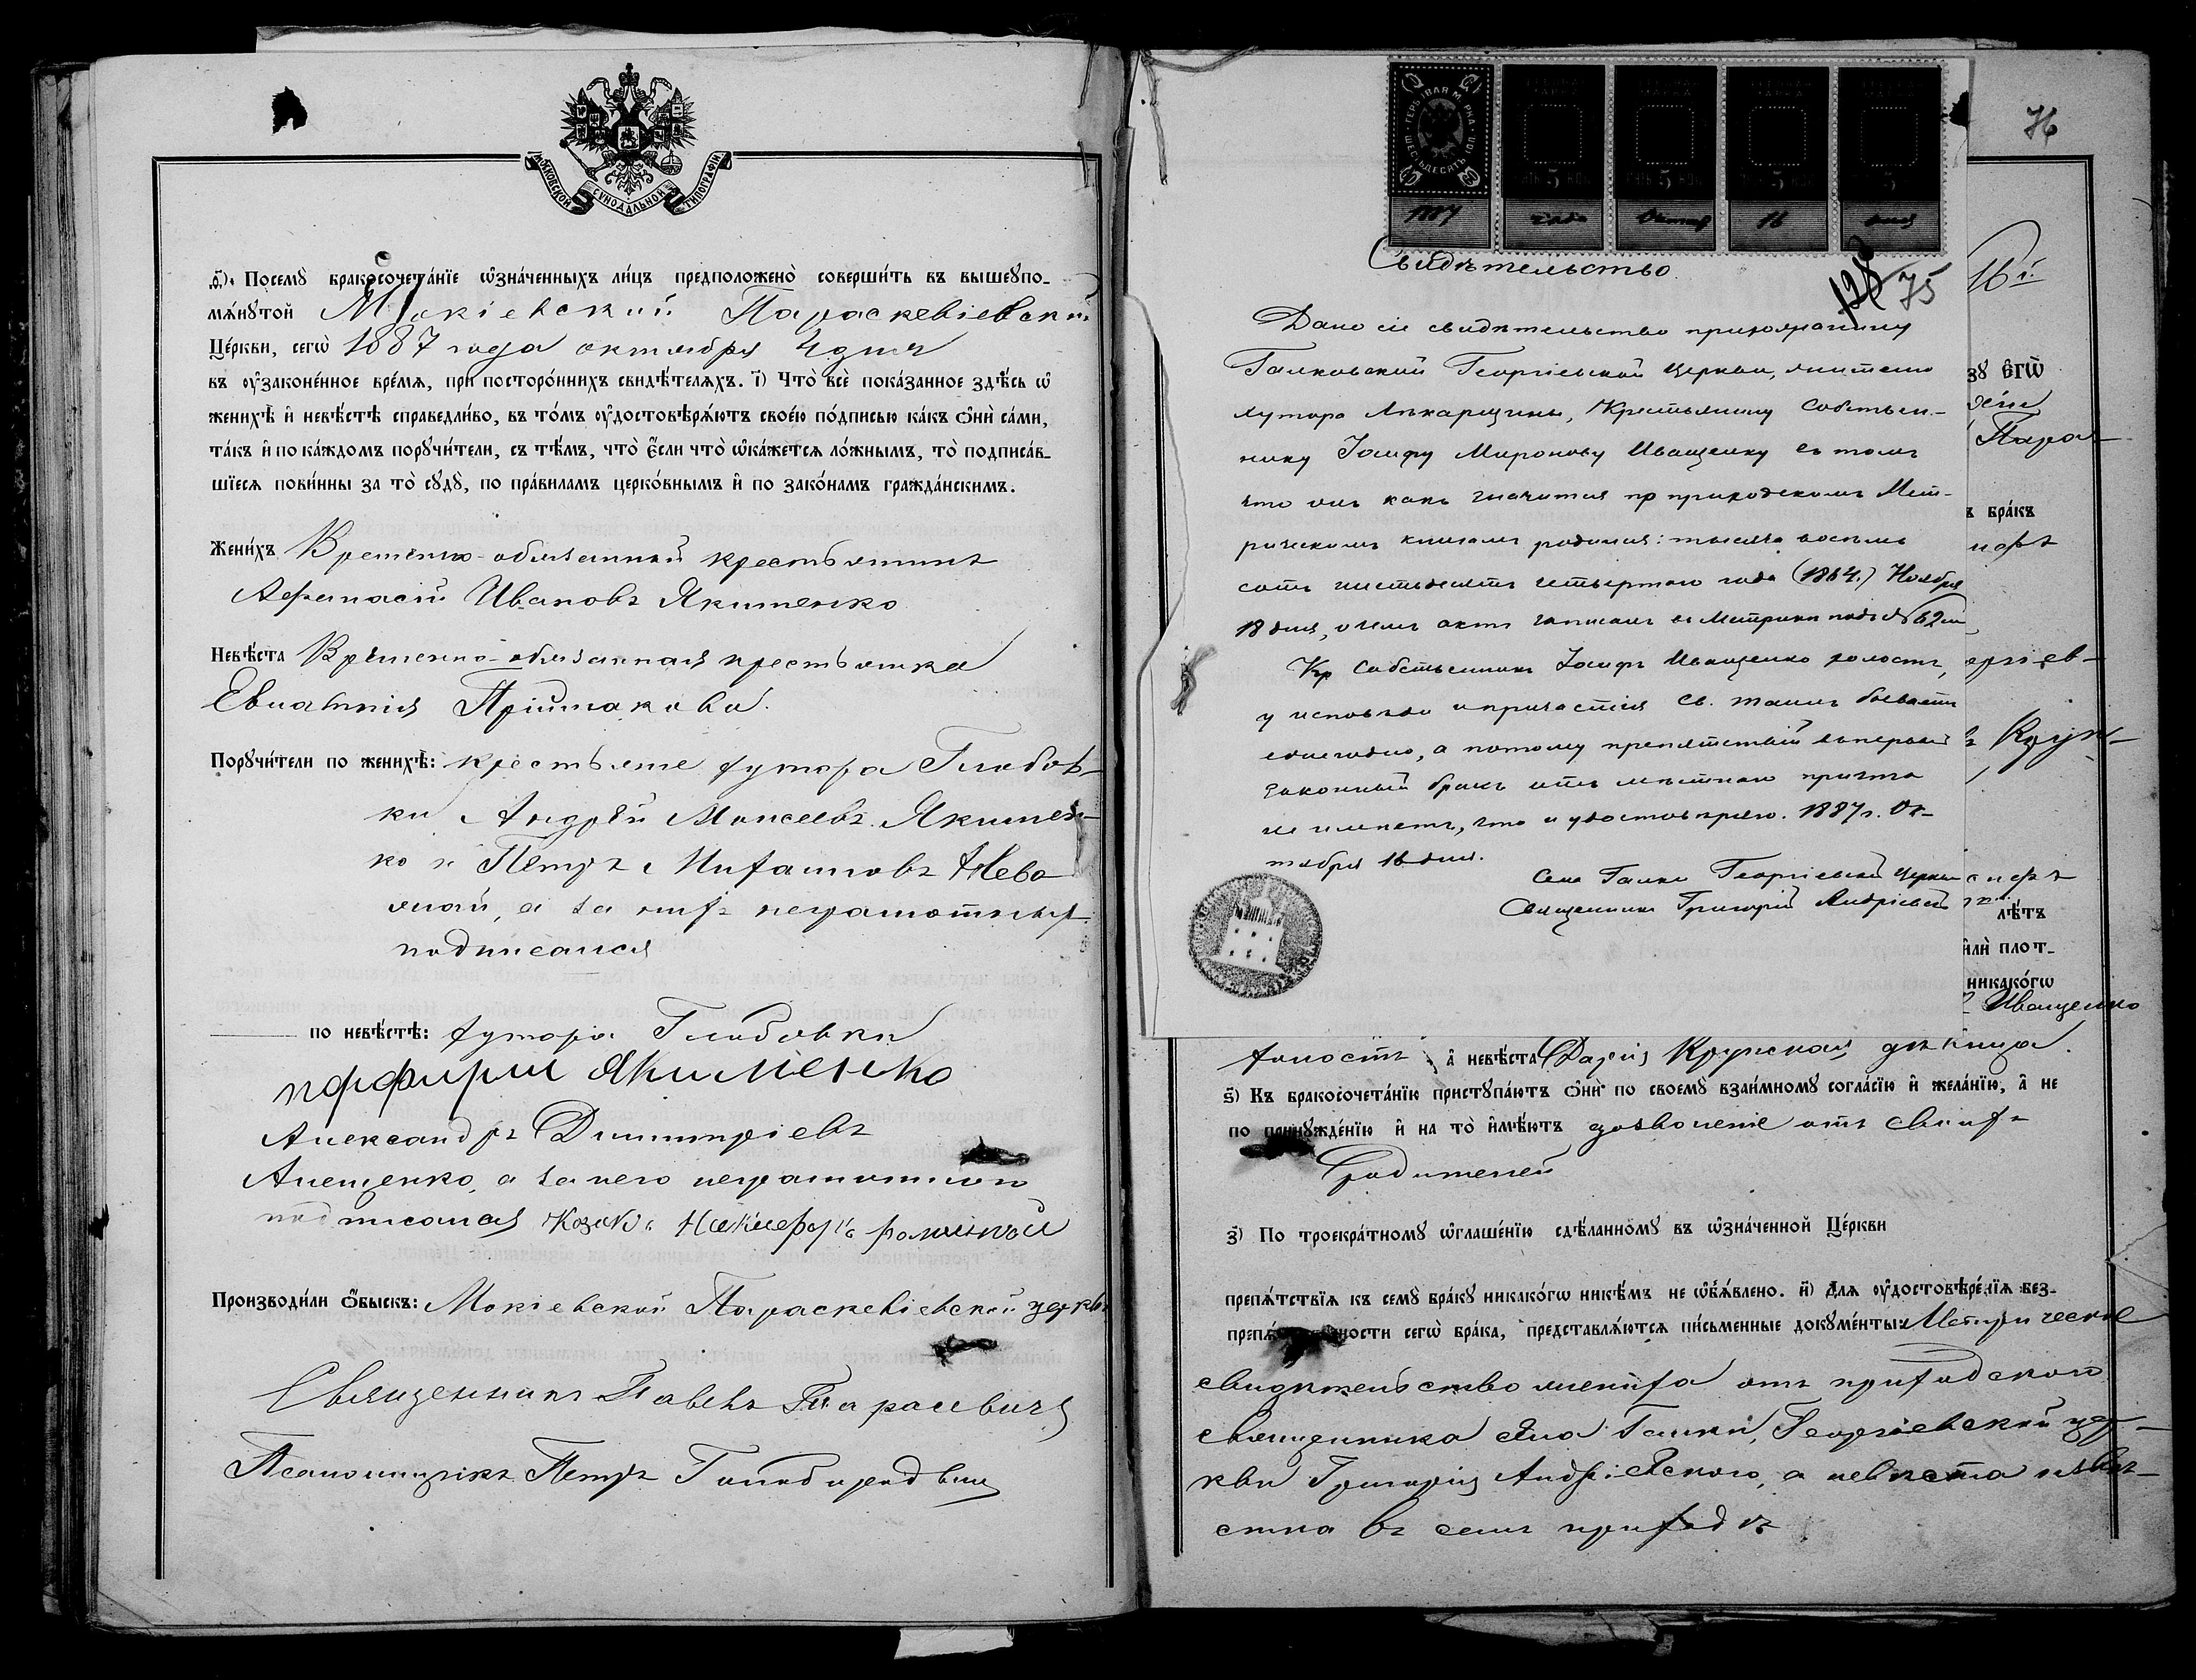 МОСКОВСКОЙ СУНОДАЛЬНОЙ ТИПОГРАФІИ
ѳ҃). Посемꙋ̀ бракосочета́нїе ѡ҆зна́ченныхъ ли́цъ предположено̀ соверши́ть въ вышеꙋпо-
мѧ́нꙋтой Мокіевской Параскевіевской
Це́ркви, сегѡ̀ 1887 года октября 4 дня
въ ᲂу҆законе́нное вре́мѧ, при посторо́ннихъ свидѣ́телѧхъ. і҃) Что̀ всѐ пока́занное здѣ́сь ѡ҆
женихѣ̀ и҆ невѣ́стѣ справедли́во, въ то́мъ ᲂу҆достовѣрѧ́ютъ свое́ю по́дписью ка́къ ѻ҆нѝ са́ми,
та́къ и҆ по ка́ждомъ порꙋчи́тели, съ тѣ́мъ, что̀ є҆́сли что̀ ѡ҆ка́жетсѧ ло́жнымъ, то̀ подписа́в-
шїесѧ пови́нны за то̀ сꙋдꙋ̀, по пра́виламъ церко́внымъ и҆ по зако́намъ гражда́нскимъ.
Жени́хъ Временно-обязанный крестьянинъ
Афанасій Ивановъ Якименко
Невѣ́ста Временно-обязанная крестьянка
Евпатія Пріймакова.
Порꙋчи́тели по женихѣ̀: крестьяне хутора Глибов-
ки Андрей Моисеевъ Якимен-
ко и Петръ Михаиловъ
а за нихъ неграмотныхъ
подписался
по невѣ́стѣ: хутора Глибовки
Якименко
Александръ Димитріевъ
а за него неграмотного
подписался козакъ Никифоръ
Производи́ли ѻ҆́быскъ: Мокіевской Параскевіевской церкви
Священникъ Павелъ Тарасевичъ
Псаломщикъ Петръ
1887 года Октяб 16 дня
Свидѣтельство
128 75
76
Дано сіе свидѣтельство прихожанину
Галковской Георгіевской церкви, жителю
хутора Лѣкарщины, Крестьянину Собствен-
нику Іосифу Миронову Иващенку въ томъ
что онъ какъ значится по приходскимъ Мет-
рическимъ книгамъ родился: тысяча восемь
сотъ шестьдесятъ четвертого года (1864.) Ноября
18 дня, о чемъ актъ записанъ въ Метрики подъ № 62м
Кр Собственникъ Іосифъ Иващенко холостъ,
у исповѣди и причастія Св. таинъ бываетъ
ежегодно, а потому препятствій въ первый
законный бракъ отъ мѣстнаго причта
не имѣетъ, что и удостовѣряю. 1887 г. Ок-
тября 16 дня.
Села Галки Георгіевской Церкви
Священникъ Григорій Андріевскій
16
зꙋ є҆гѡ̀
Пара-
бра́къ
оргіев-
Круп-
лѣ́тъ
и҆лѝ плот-
никако́гѡ
Иващенко
холостъ, а҆ невѣ́ста Дарія Крупская дѣвица.
ѕ҃) Къ бракосочета́нїю пристꙋпа́ютъ ѻ҆нѝ по своемꙋ̀ взаи́мномꙋ согла́сїю и҆ жела́нїю, а҆ не
по принꙋжде́нїю и҆ на то̀ и҆мѣ́ютъ дозволеніе отъ своихъ
родителей
з҃) По троекра́тномꙋ ѡ҆глаше́нїю сдѣ́ланномꙋ въ ѡ҆зна́ченной Це́ркви
препѧ́тствїѧ къ семꙋ̀ бра́кꙋ никако́гѡ никѣ́мъ не ѡ҆б̾ѧ́влено. и҃) Длѧ ᲂу҆достовѣре́нїѧ без-
препѧ́тственности сегѡ̀ бра́ка, представлѧ́ютсѧ пи́сьменные докꙋме́нты: Метрическое
свидѣтельство жениха отъ приходского
священника села Галки, Георгіевской цер-
кви Григорія Андріевского, а невѣста извѣ-
стна въ семъ приходѣ.